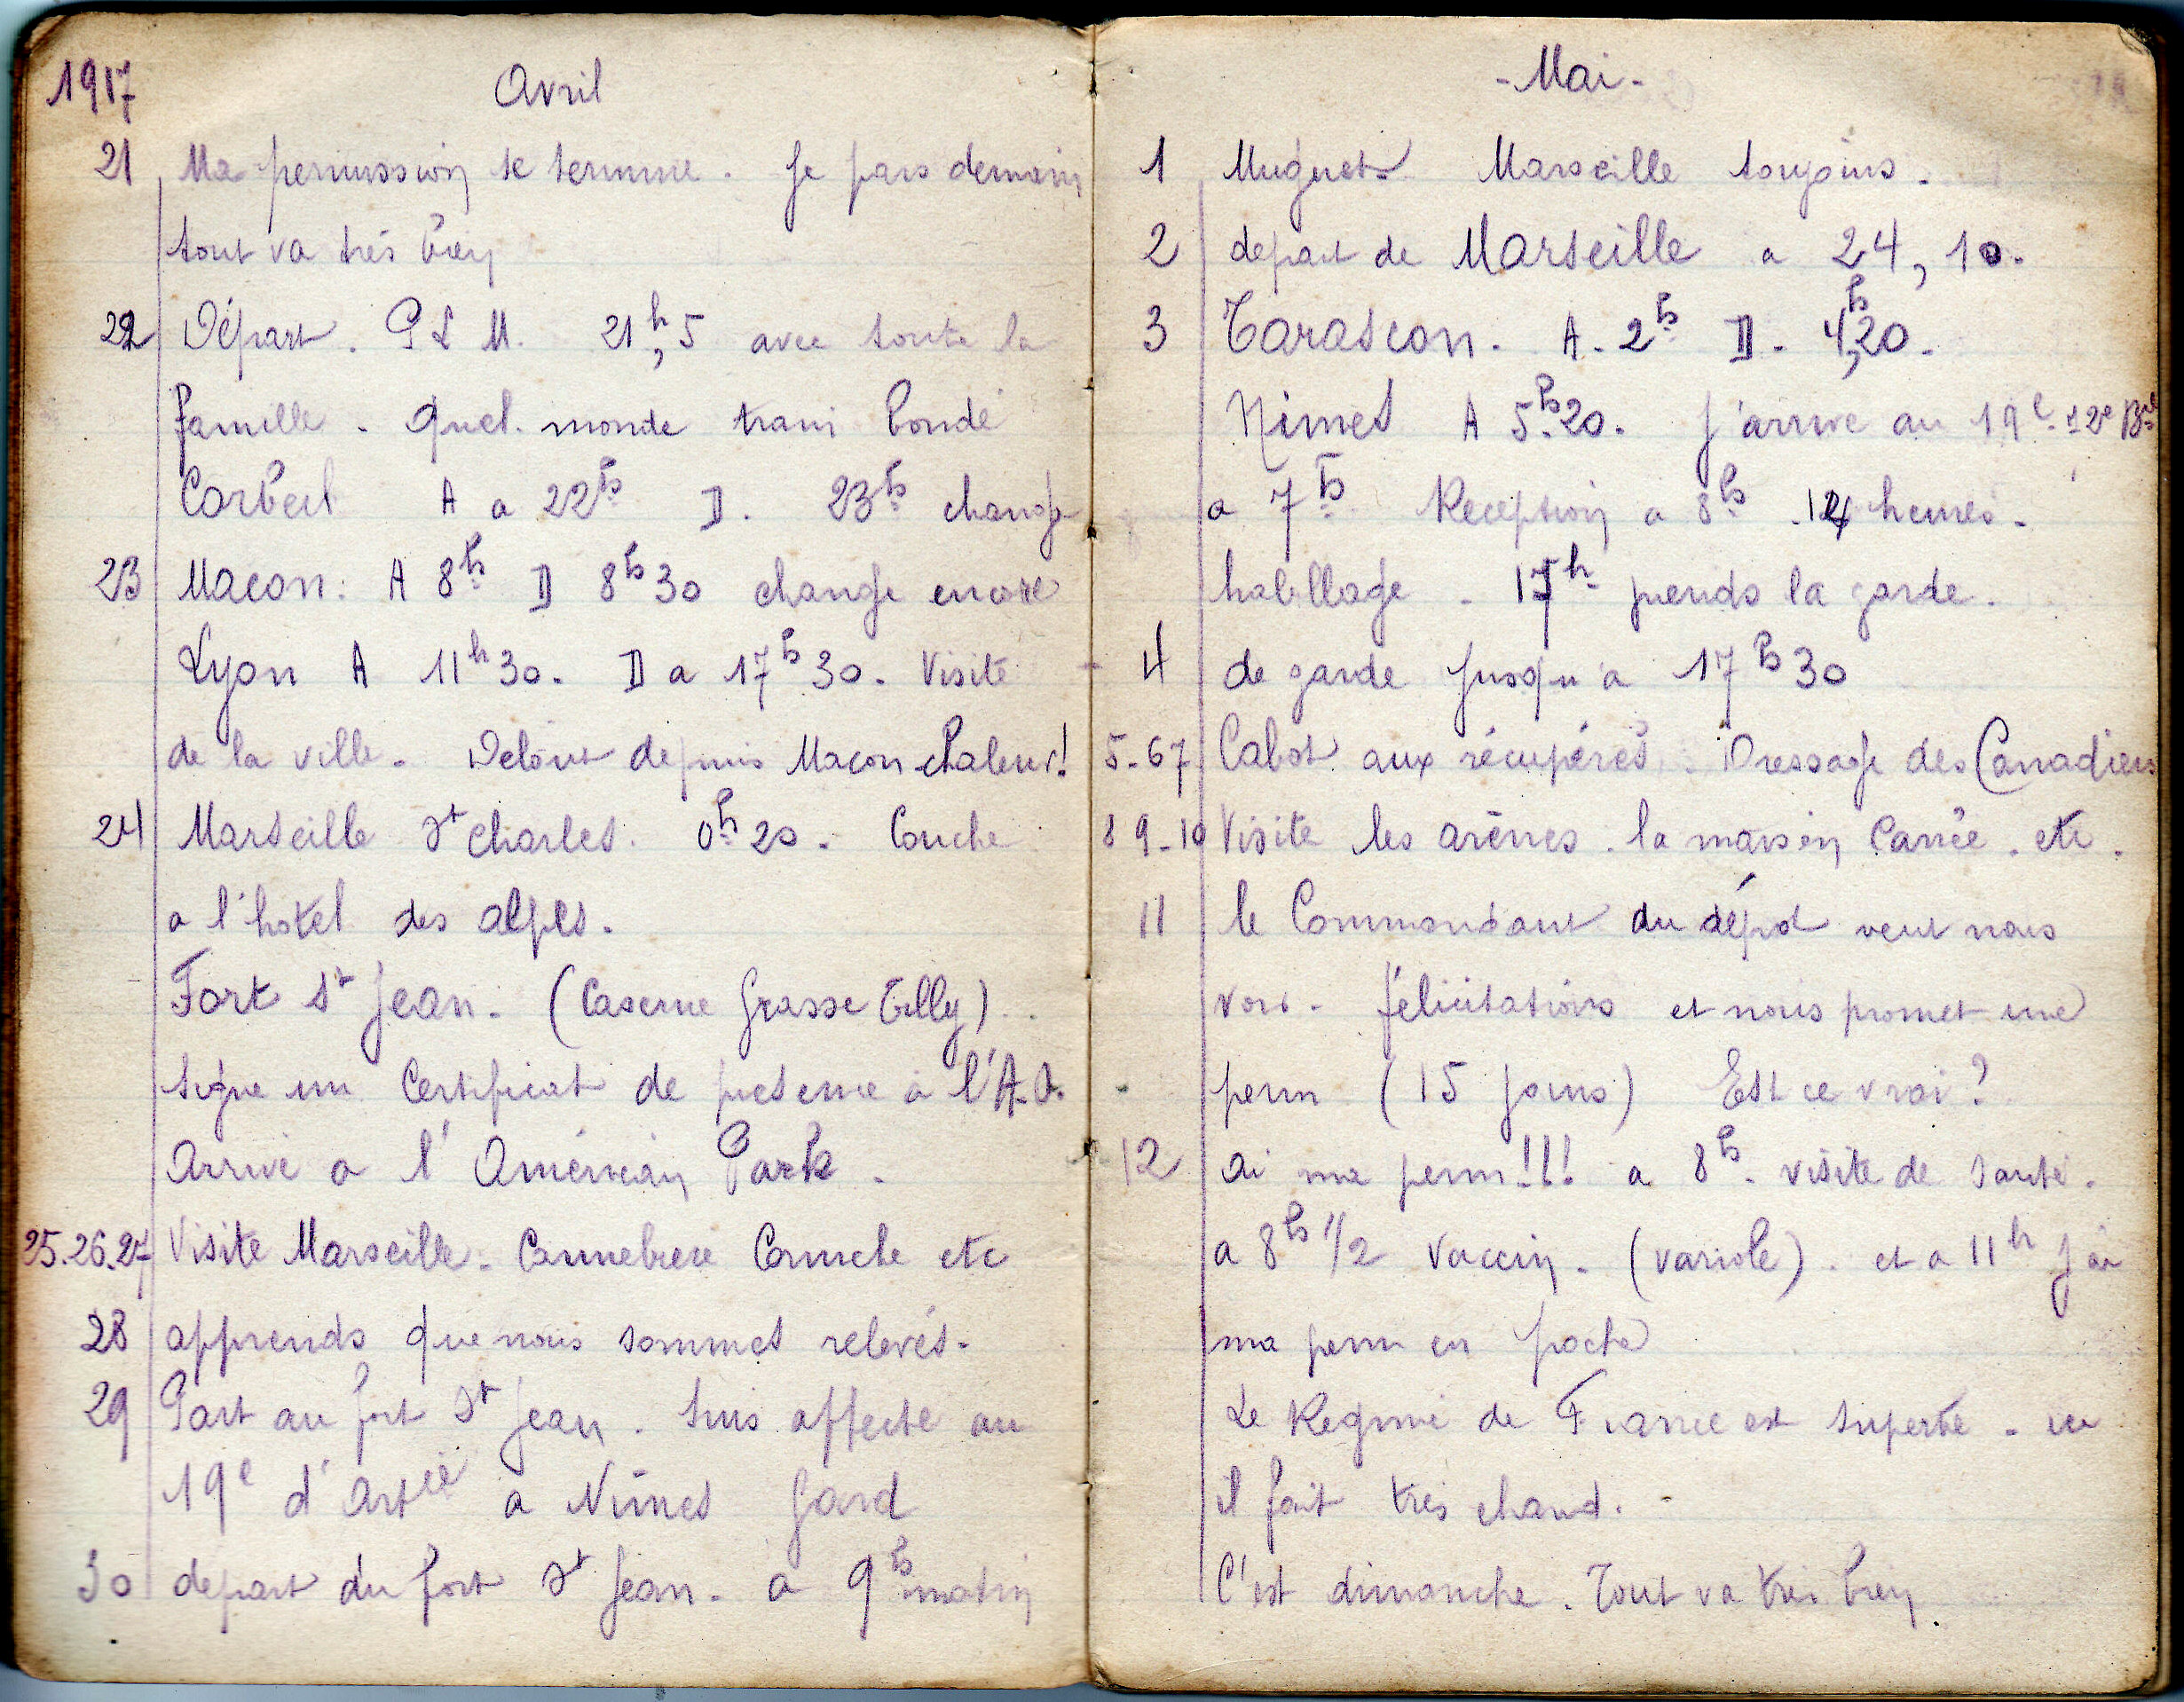 1917
Avril
21 Ma permission se termine. Je pars demain
tout va très bien
22 Départ. P L M. 21h,5 avec toute la
famille. Quel monde train bondé
Corbeil A a 22h D. 23h change
23 Macon: A 8h D 8h30 change encore
Lyon A 11h30. D a 17h30. Visite
de la ville. Debout depuis Macon chaleur!
24 Marseille St Charles. 0h20. Couche
a l'hotel des alpes.
Fort St Jean. (Caserne Grasse Tilly)
signe un Certificat de presence à l'A.O.
Arrive a l'Américain Park.
25.26.27 Visite Marseille. Cannebiere Corniche etc
28 apprends que nous sommes relevés.
29 Part au fort St Jean. Suis affecté au
19e d'Artie a Nîmes Gard
30 depart du fort St Jean. a 9h matin
- Mai -
1 Muguet. Marseille toujours.
2 depart de Marseille a 24,10.
3 Tarascon. A. 2h D. 4h,20.
Nimes A 5h20. J'arrive au 19e 12e Bie
a 7h Reception a 8h. 14 heures.
habillage. 17h prends la garde.
4 de garde jusqu'a 17h30
5-67 Cabot aux récupérés. Dressage des Canadiens
8 9-10 Visite les arènes. la maison Carrée. etc.
11 le Commandant du dépot veut nous
voir. félicitations et nous promet une
perm (15 jours) Est ce vrai?
12 ai ma perm!!! a 8h. visite de santé.
a 8h 1/2 Vaccin. (variole). et a 11h j'ai
ma perm en poche
Le Regime de France est superbe.
il fait très chaud.
C'est dimanche. Tout va très bien.